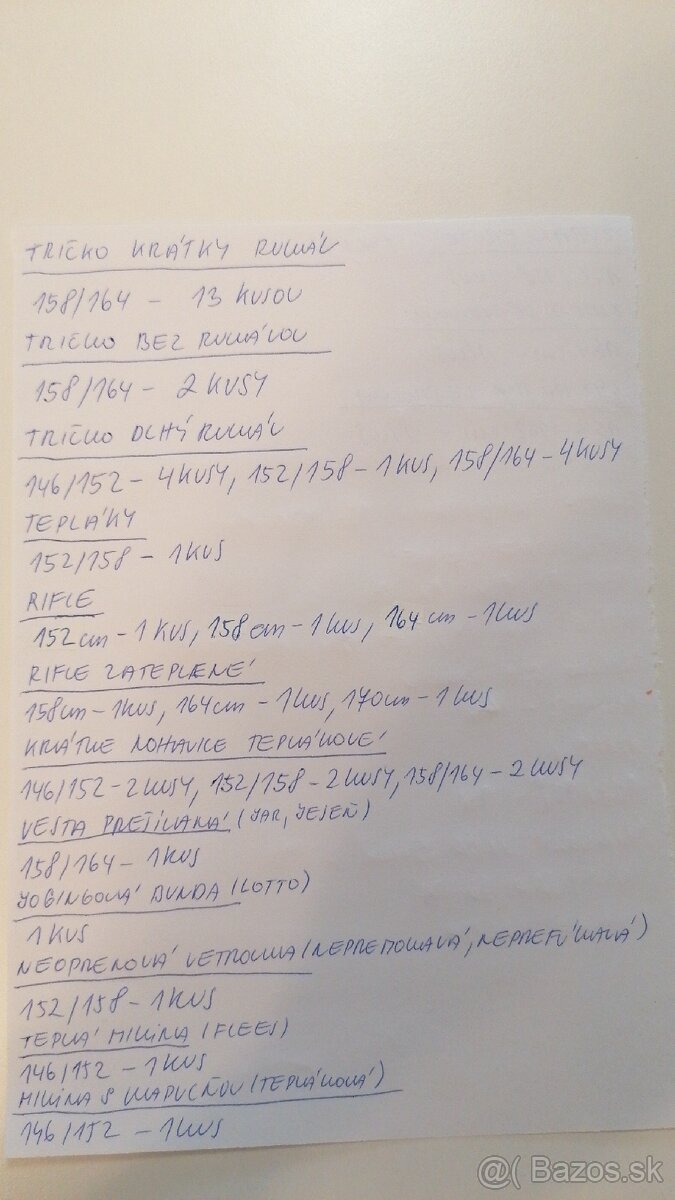 TRIČKO KRÁTKY RUKÁV
158/164 - 13 KUSOV
TRIČKO BEZ RUKÁVOV
158/164 - 2 KUSY
TRIČKO DLHÝ RUKÁV
146/152 - 4 KUSY, 152/158 - 1 KUS, 158/164 - 4 KUSY
TEPLÁKY
152/158 - 1 KUS
RIFLE
152 cm - 1 KUS, 158 cm - 1 kus, 164 cm - 1 kus
RIFLE ZATEPLENÉ
158 cm - 1 KUS, 164 cm - 1 kus, 170 cm - 1 KUS
KRÁTKE NOHAVICE TEPLÁKOVÉ
146/152 - 2 KUSY, 152/158 - 2 KUSY, 158/164 - 2 KUSY
VESTA PREŠÍVANÁ (JAR, JESEŇ)
158/164 - 1 KUS
JOGINGOVÁ BUNDA (LOTTO)
1 KUS
NEOPRENOVÁ VETROVKA (NEPREMOKAVÁ, NEPREFÚKAVÁ)
152/158 - 1 KUS
TEPLÁ MIKINA (FLEES)
146/152 - 1 KUS
MIKINA S KAPUCŇOU (TEPLÁKOVÁ)
146/152 - 1 KUS
@( Bazos.sk